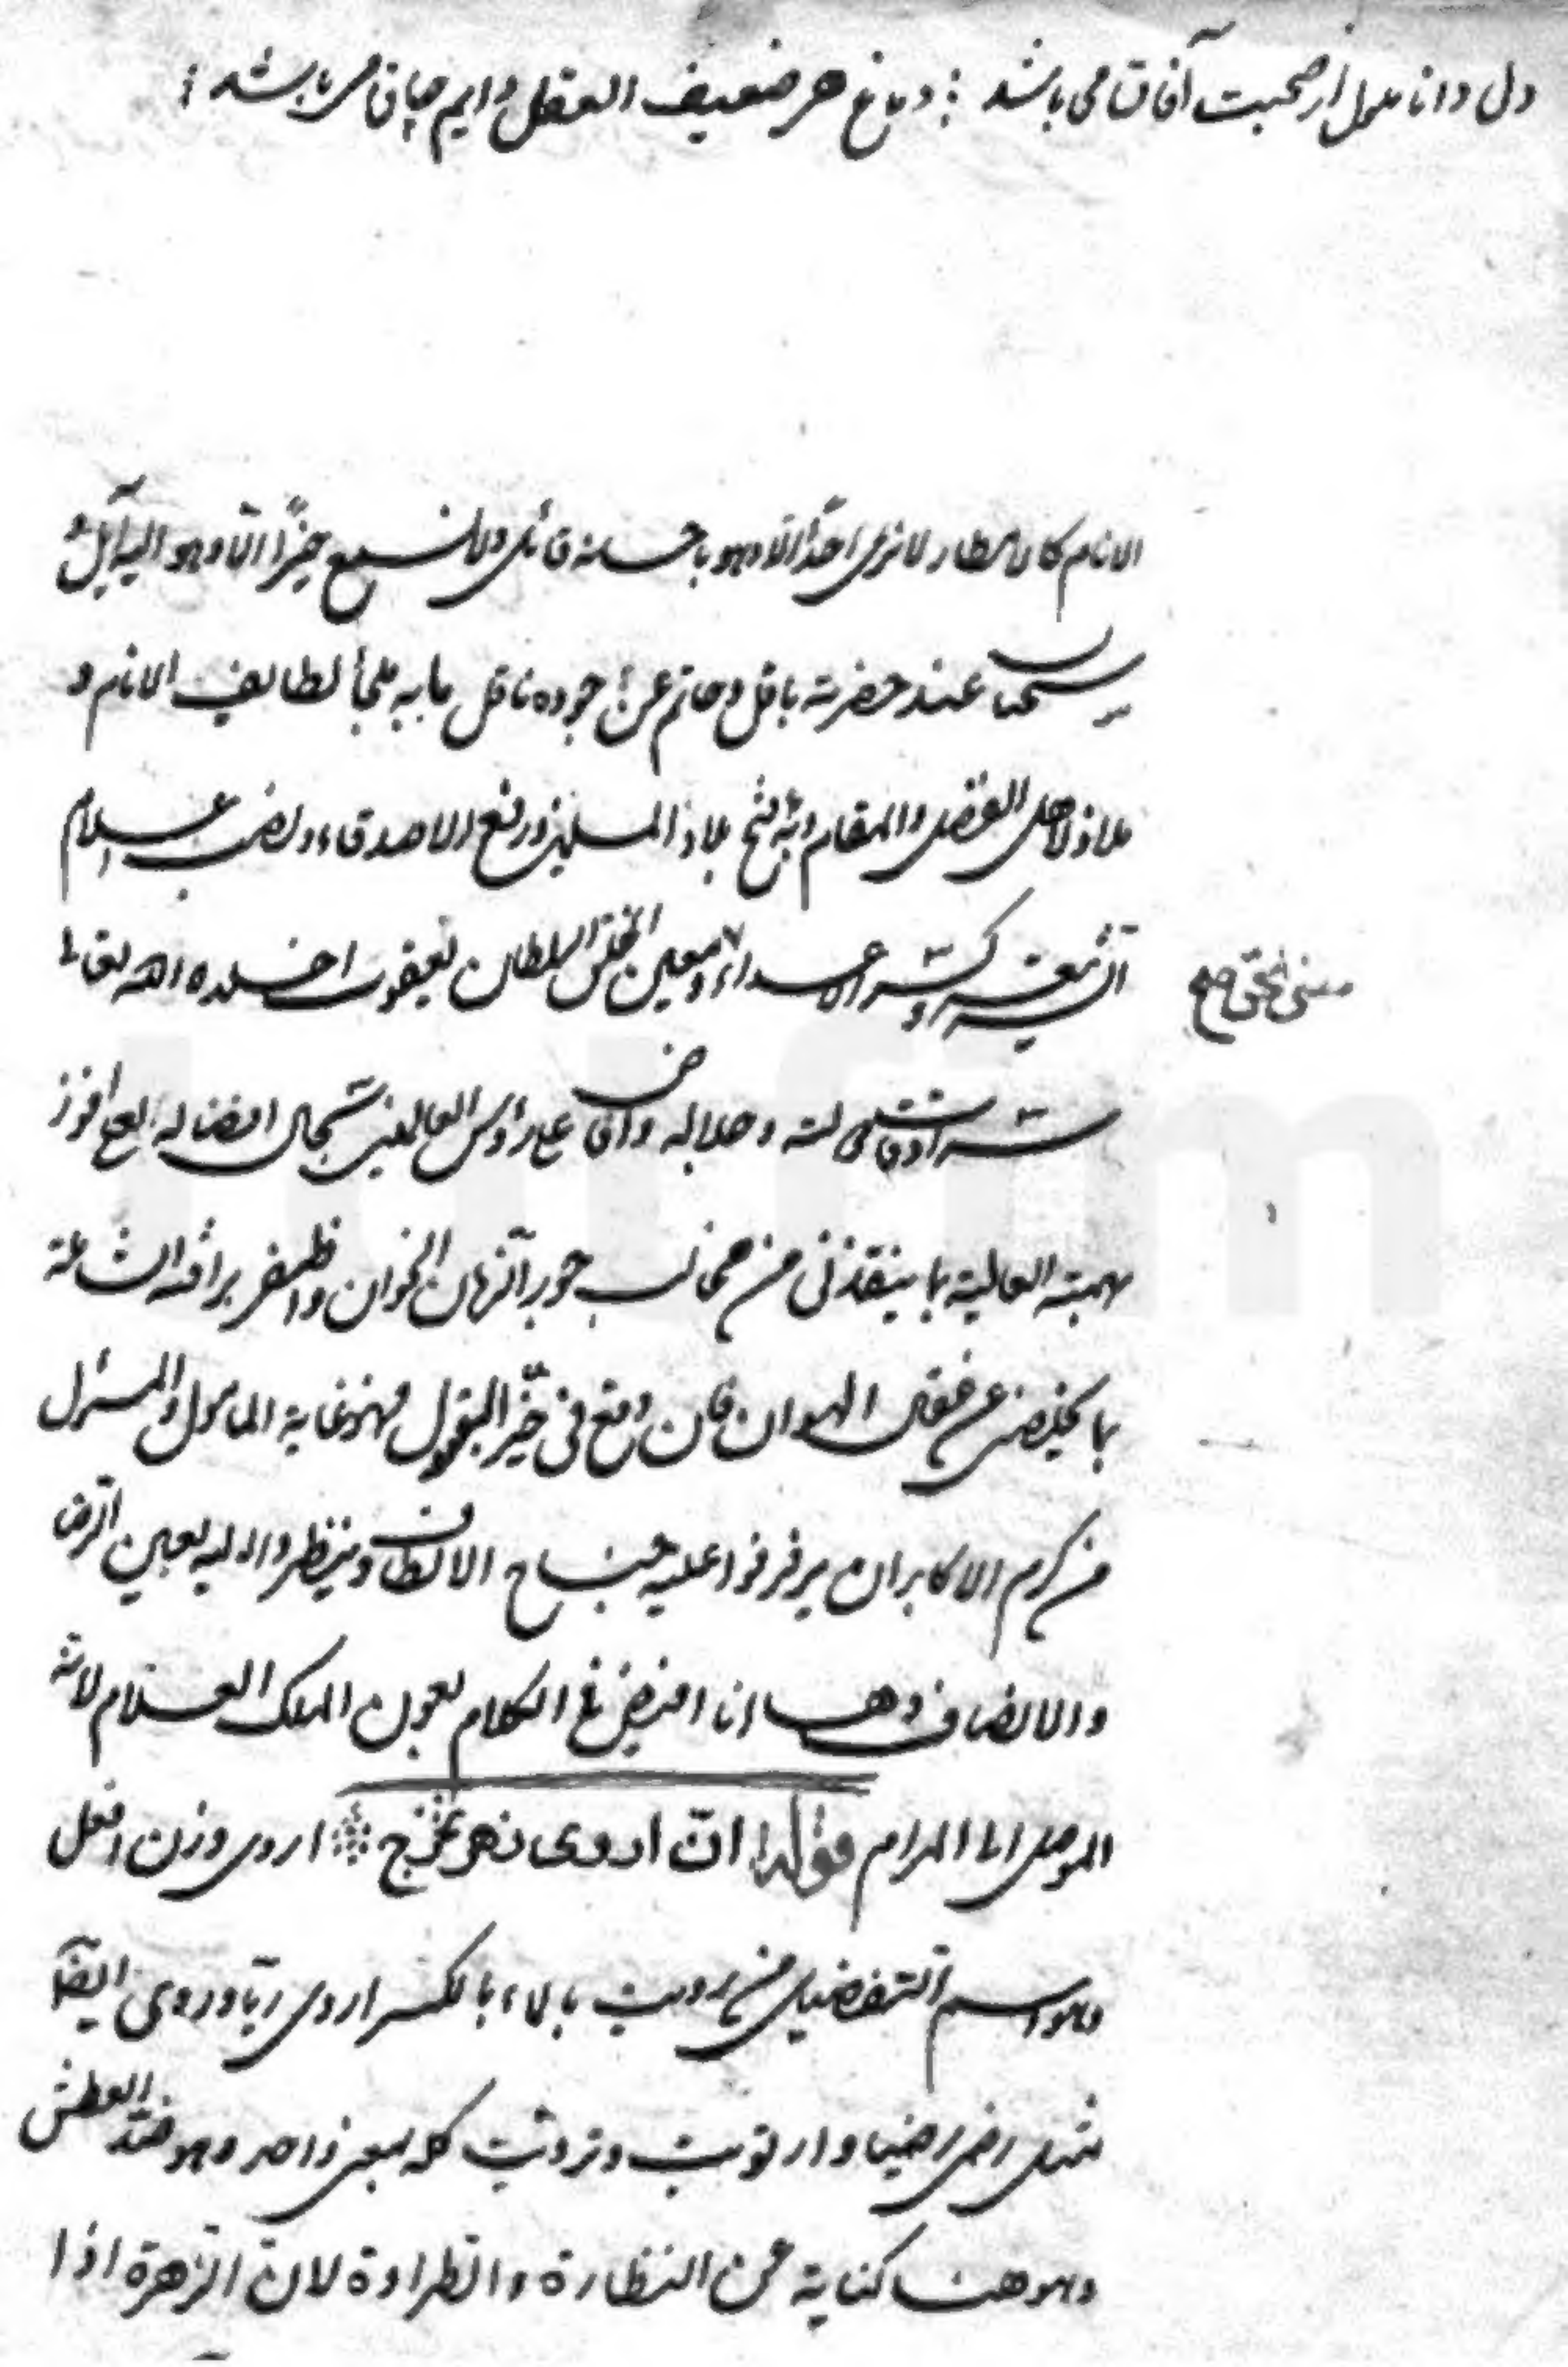 دل دانا ملول از صحبت آفاق می باشد ؛ دماغ هر ضعیف العقل دایم چاق می باشد ؛
الانام کالامطار لا نری احدًا الا وهو باحسانه قائل ولا نسمع خیرًا الا وهو الیه آیل
سحبان عند حضرته باقل وحاتم عن جوده ناقل بابه ملجأ لطایف الانام و
ملاذ لاهل الفضل والمقام وبه فتح بلاد المسلمین ورفع الاصدقاء ونصب اعلام
الشریعة وکسر الاعداء ومعین الخلق السلطان یعقوب اخلده الله تعالی
مغنی الخلق صح
سرادقات وجلاله وافاض علی رؤس العالمین سجال افضاله لعلی افوز
بهمته العالیة بما ینقذنی من مخالب جور الزمان الخوان واظفر برافته الشاملة
بما یخلصنی عن عقال الهوان فان وقع فی حیز القبول فهو غایة المامول والمسئول
من کرم الاکابر ان یرفرفوا علیه جناح الالطاف وینظروا الیه بعین الرضا
والانصاف وها انا افیض فی الکلام بعون الملک العلام لانه
الموصل الی المرام قوله انّ اروی زهر تخرج اروی وزن افعل
وهو اسم التفضیل من رویت بالماء بالکسر اروی ریّا وروی ایضًا
مثل رضی رضیا وارتویت وترویت کله بمعنی واحد وهو ضد العطش
وهو هنا کنایة عن النظارة والطراوة لان الزهرة اذا